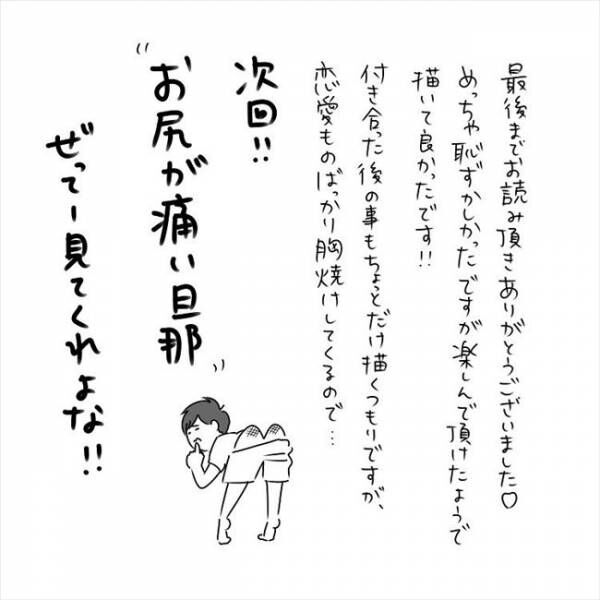 最後までお読み頂きありがとうございました♡
めっちゃ恥ずかしかったですが楽しんで頂けたようで
描いて良かったです!!
付き合った後の事もちょっとだけ描くつもりですが、
恋愛ものばっかり胸焼けしてくるので…
次回!!
"お尻が痛い旦那"
ぜってー見てくれよな!!